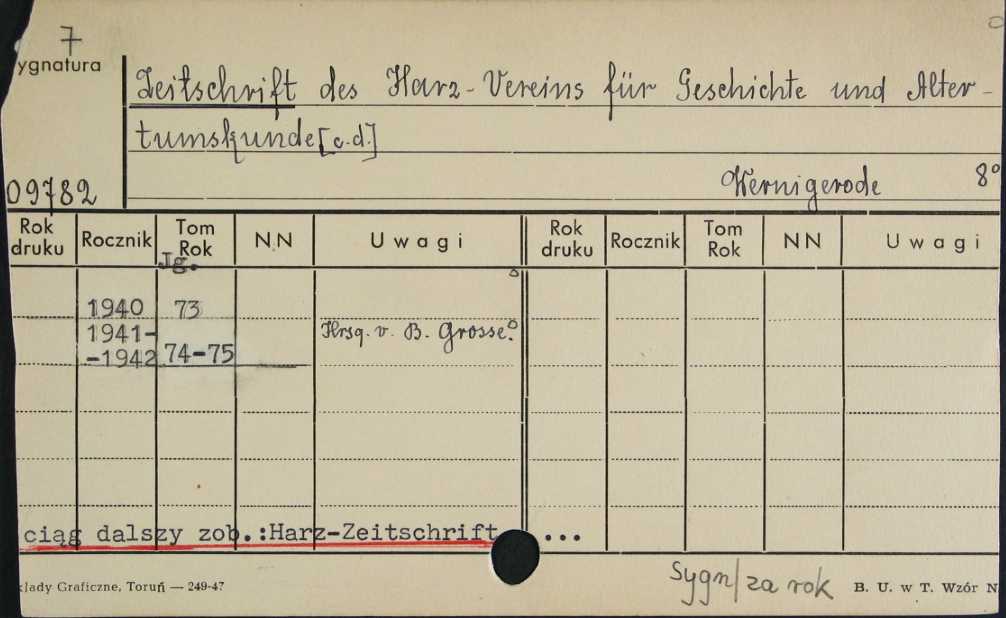 7
ygnatura
Zeitschrift des Harz-Vereins für Geschichte und Alter-
tumskunde [c.d.]
09782
Wernigerode 8°
Rok druku Rocznik Tom Rok NN Uwagi Rok druku Rocznik Tom Rok NN Uwagi
Jg.
1940 73
1941-
-1942 74-75 Hrsg. v. B. Grosse.
ciąg dalszy zob.:Harz-Zeitschrift ...
łady Graficzne, Toruń — 249-47
Sygn/za rok
B. U. w T. Wzór N